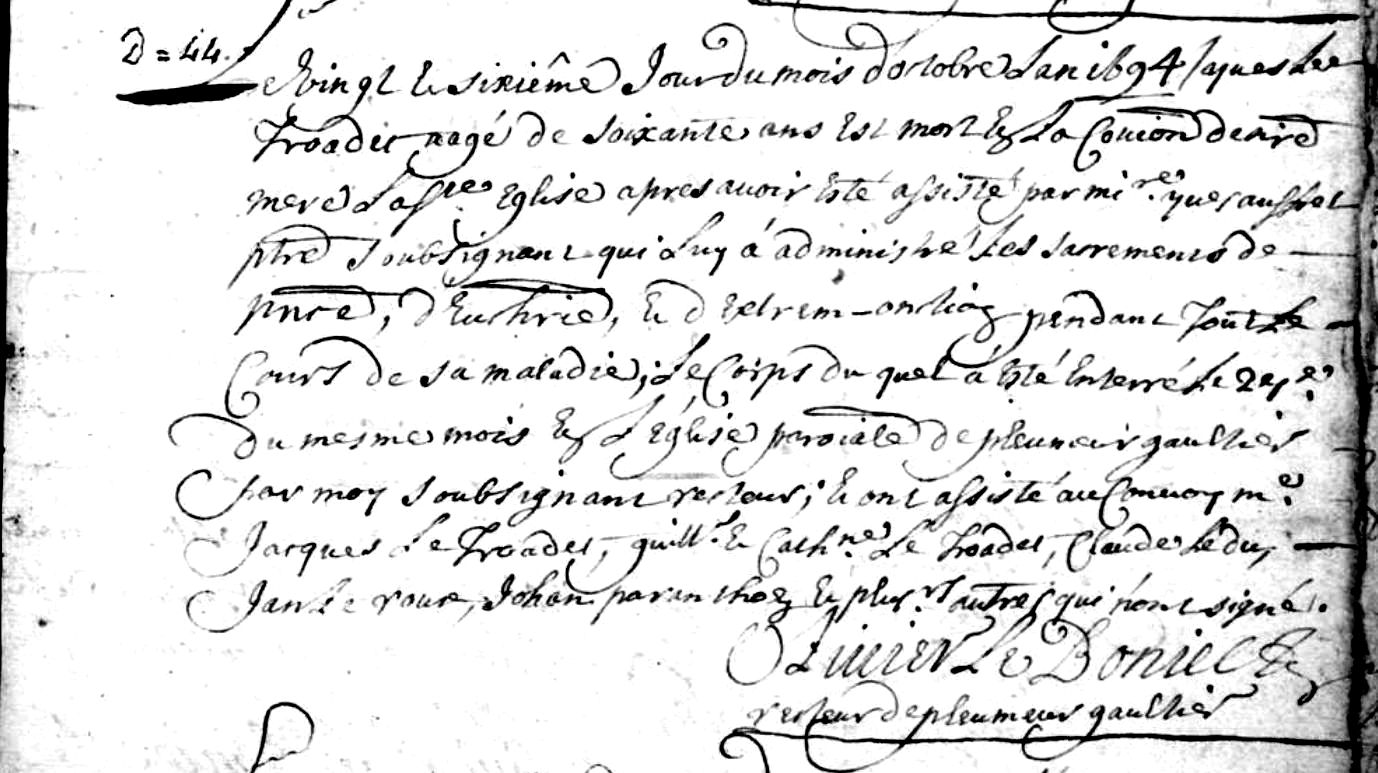 D = 44.
Le Vingt le sixiême Jour du mois d'octobre L'an 1694 Jaques Le
Troadec aagé de soixante ans Est mort En La Coũion de nr̃e
mere La Ste. Eglise apres avoir Esté assisté par mire. yues auffret
ptr̃e Soubsignant qui Luy á administré Les Sacrements de
pñce, d'Euchrie, Et d'Extrem-onction pendant Tout Le
Cours de sa maladie; Le Corps du quel á Esté Enterré Le 27e.
Du mesme mois En L'église paroiale de pleumeur gaultier
par moy Soubsignant recteur; Et ont assisté au Convoy me.
Jacques Le Troadec, guilll. Et Cathne. Le Troadec, Claude Le du,
Jan Le roux, Johan paranthoen Et plusrs. autres qui n'ont signé.
Olivier Le Boniec
recteur de pleumeur gaultier